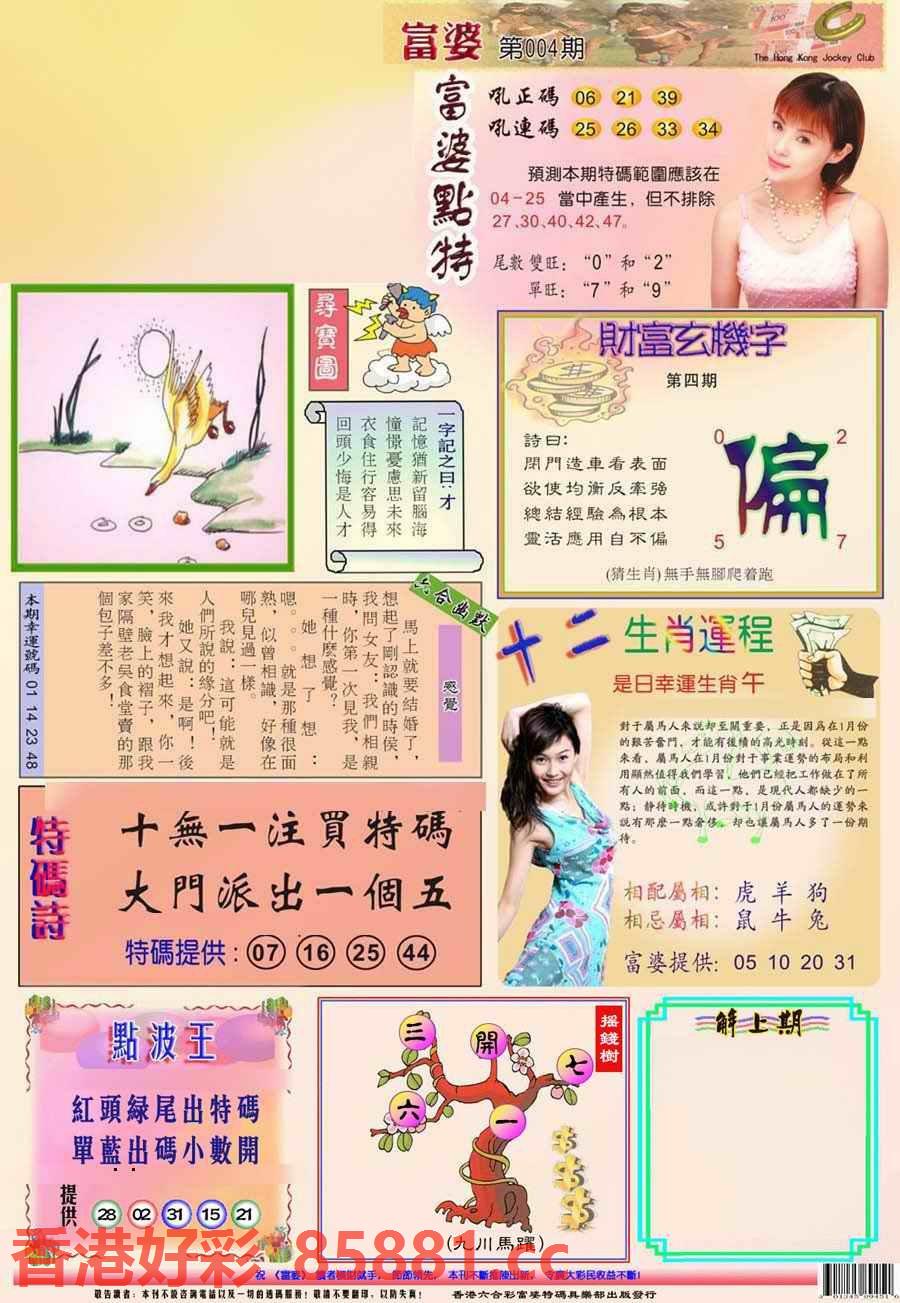 富婆 第004期
The Hong Kong Jockey Club
富婆點特
吼正碼 06 21 39
吼連碼 25 26 33 34
預測本期特碼範圍應該在
04-25 當中產生，但不排除
27、30、40、42、47。
尾數 雙旺：“0”和“2”
單旺：“7”和“9”
尋寶圖
一字記之曰：才
記憶猶新留腦海
憧憬憂慮思未來
衣食住行容易得
回頭少悔是人才
財富玄機字
第四期
詩曰：
閉門造車看表面
欲使均衡反牽強
總結經驗為根本
靈活應用自不偏
0 2
偏
5 7
(猜生肖)無手無腳爬着跑
六合幽默
感覺
馬上就要結婚了，
想起了剛認識的時侯，
我問女友：我們相親
時，你第一次見我，是
一種什麼感覺？
她想了想：
嗯。。。就是那種很面
熟，似曾相識，好像在
哪兒見過一樣。
我説：這可能就是
人們所説的緣分吧！
她又説：是啊！後
來我才想起來，你一
笑，臉上的褶子，跟我
家隔壁老吳食堂賣的那
個包子差不多！
本期幸運號碼 01 14 23 48
十二生肖運程
是日幸運生肖 午
對于屬馬人来説却至關重要，正是因為在1月份
的艱苦奮鬥，才能有後續的高光時刻。從這一點
来看，屬馬人在1月份對于事業運勢的布局和利
用顯然值得我們學習，他們已經把工作做在了所
有人的前面，而這一點，是現代人都缺少的一
點；静待時機，或許對于1月份屬馬人的運勢来
説有那麽一點奢侈，却也讓屬馬人多了一份期
待。
相配屬相：虎 羊 狗
相忌屬相：鼠 牛 兔
富婆提供：05 10 20 31
特碼詩
十無一注買特碼
大門派出一個五
特碼提供：07 16 25 44
點波王
紅頭緑尾出特碼
單藍出碼小數開
提供 28 02 31 15 21
摇錢樹
三 開 七
六 一
(九川馬躍)
解上期
香港好彩 85881.cc
敬告讀者：本刊不設咨詢電話以及一切的透碼服務！敬請不要翻印，以防失真！ 香港六合彩富婆特碼具樂部出版發行